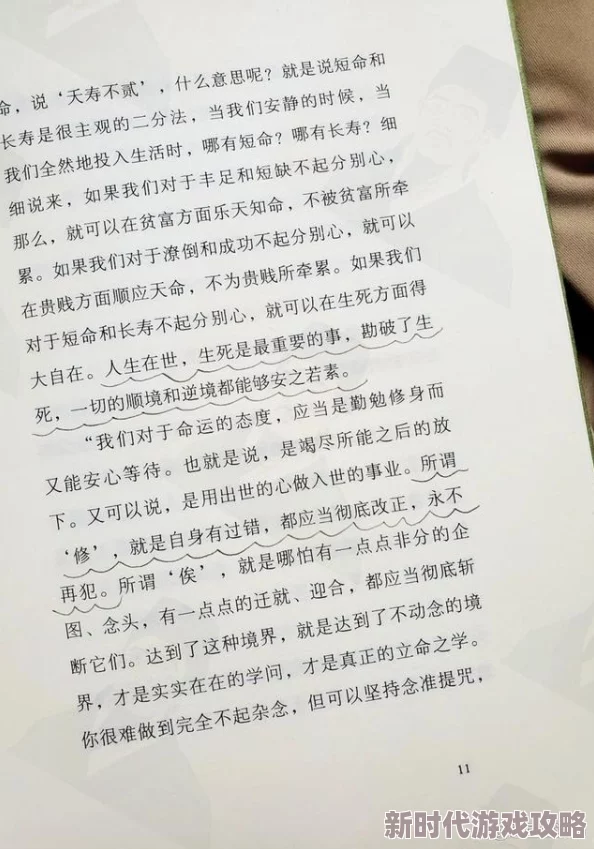 命，说‘夭寿不贰’，什么意思呢？就是说短命和
长寿是很主观的二分法，当我们安静的时候，当
我们全然地投入生活时，哪有短命？哪有长寿？细
细说来，如果我们对于丰足和短缺不起分别心，
那么，就可以在贫富方面乐天知命，不被贫富所牵
累。如果我们对于潦倒和成功不起分别心，就可以
在贵贱方面顺应天命，不为贵贱所牵累。如果我们
对于短命和长寿不起分别心，就可以在生死方面得
大自在。人生在世，生死是最重要的事，勘破了生
死，一切的顺境和逆境都能够安之若素。
“我们对于命运的态度，应当是勤勉修身而
又能安心等待。也就是说，是竭尽所能之后的放
下。又可以说，是用出世的心做入世的事业。所谓
‘修’，就是自身有过错，都应当彻底改正，永不
再犯。所谓‘俟’，就是哪怕有一点点非分的企
图、念头，有一点点的迁就、迎合，都应当彻底斩
断它们。达到了这种境界，就是达到了不动念的境
界，才是实实在在的学问，才是真正的立命之学。
你很难做到完全不起杂念，但可以坚持念准提咒，
11
新时代游戏攻略